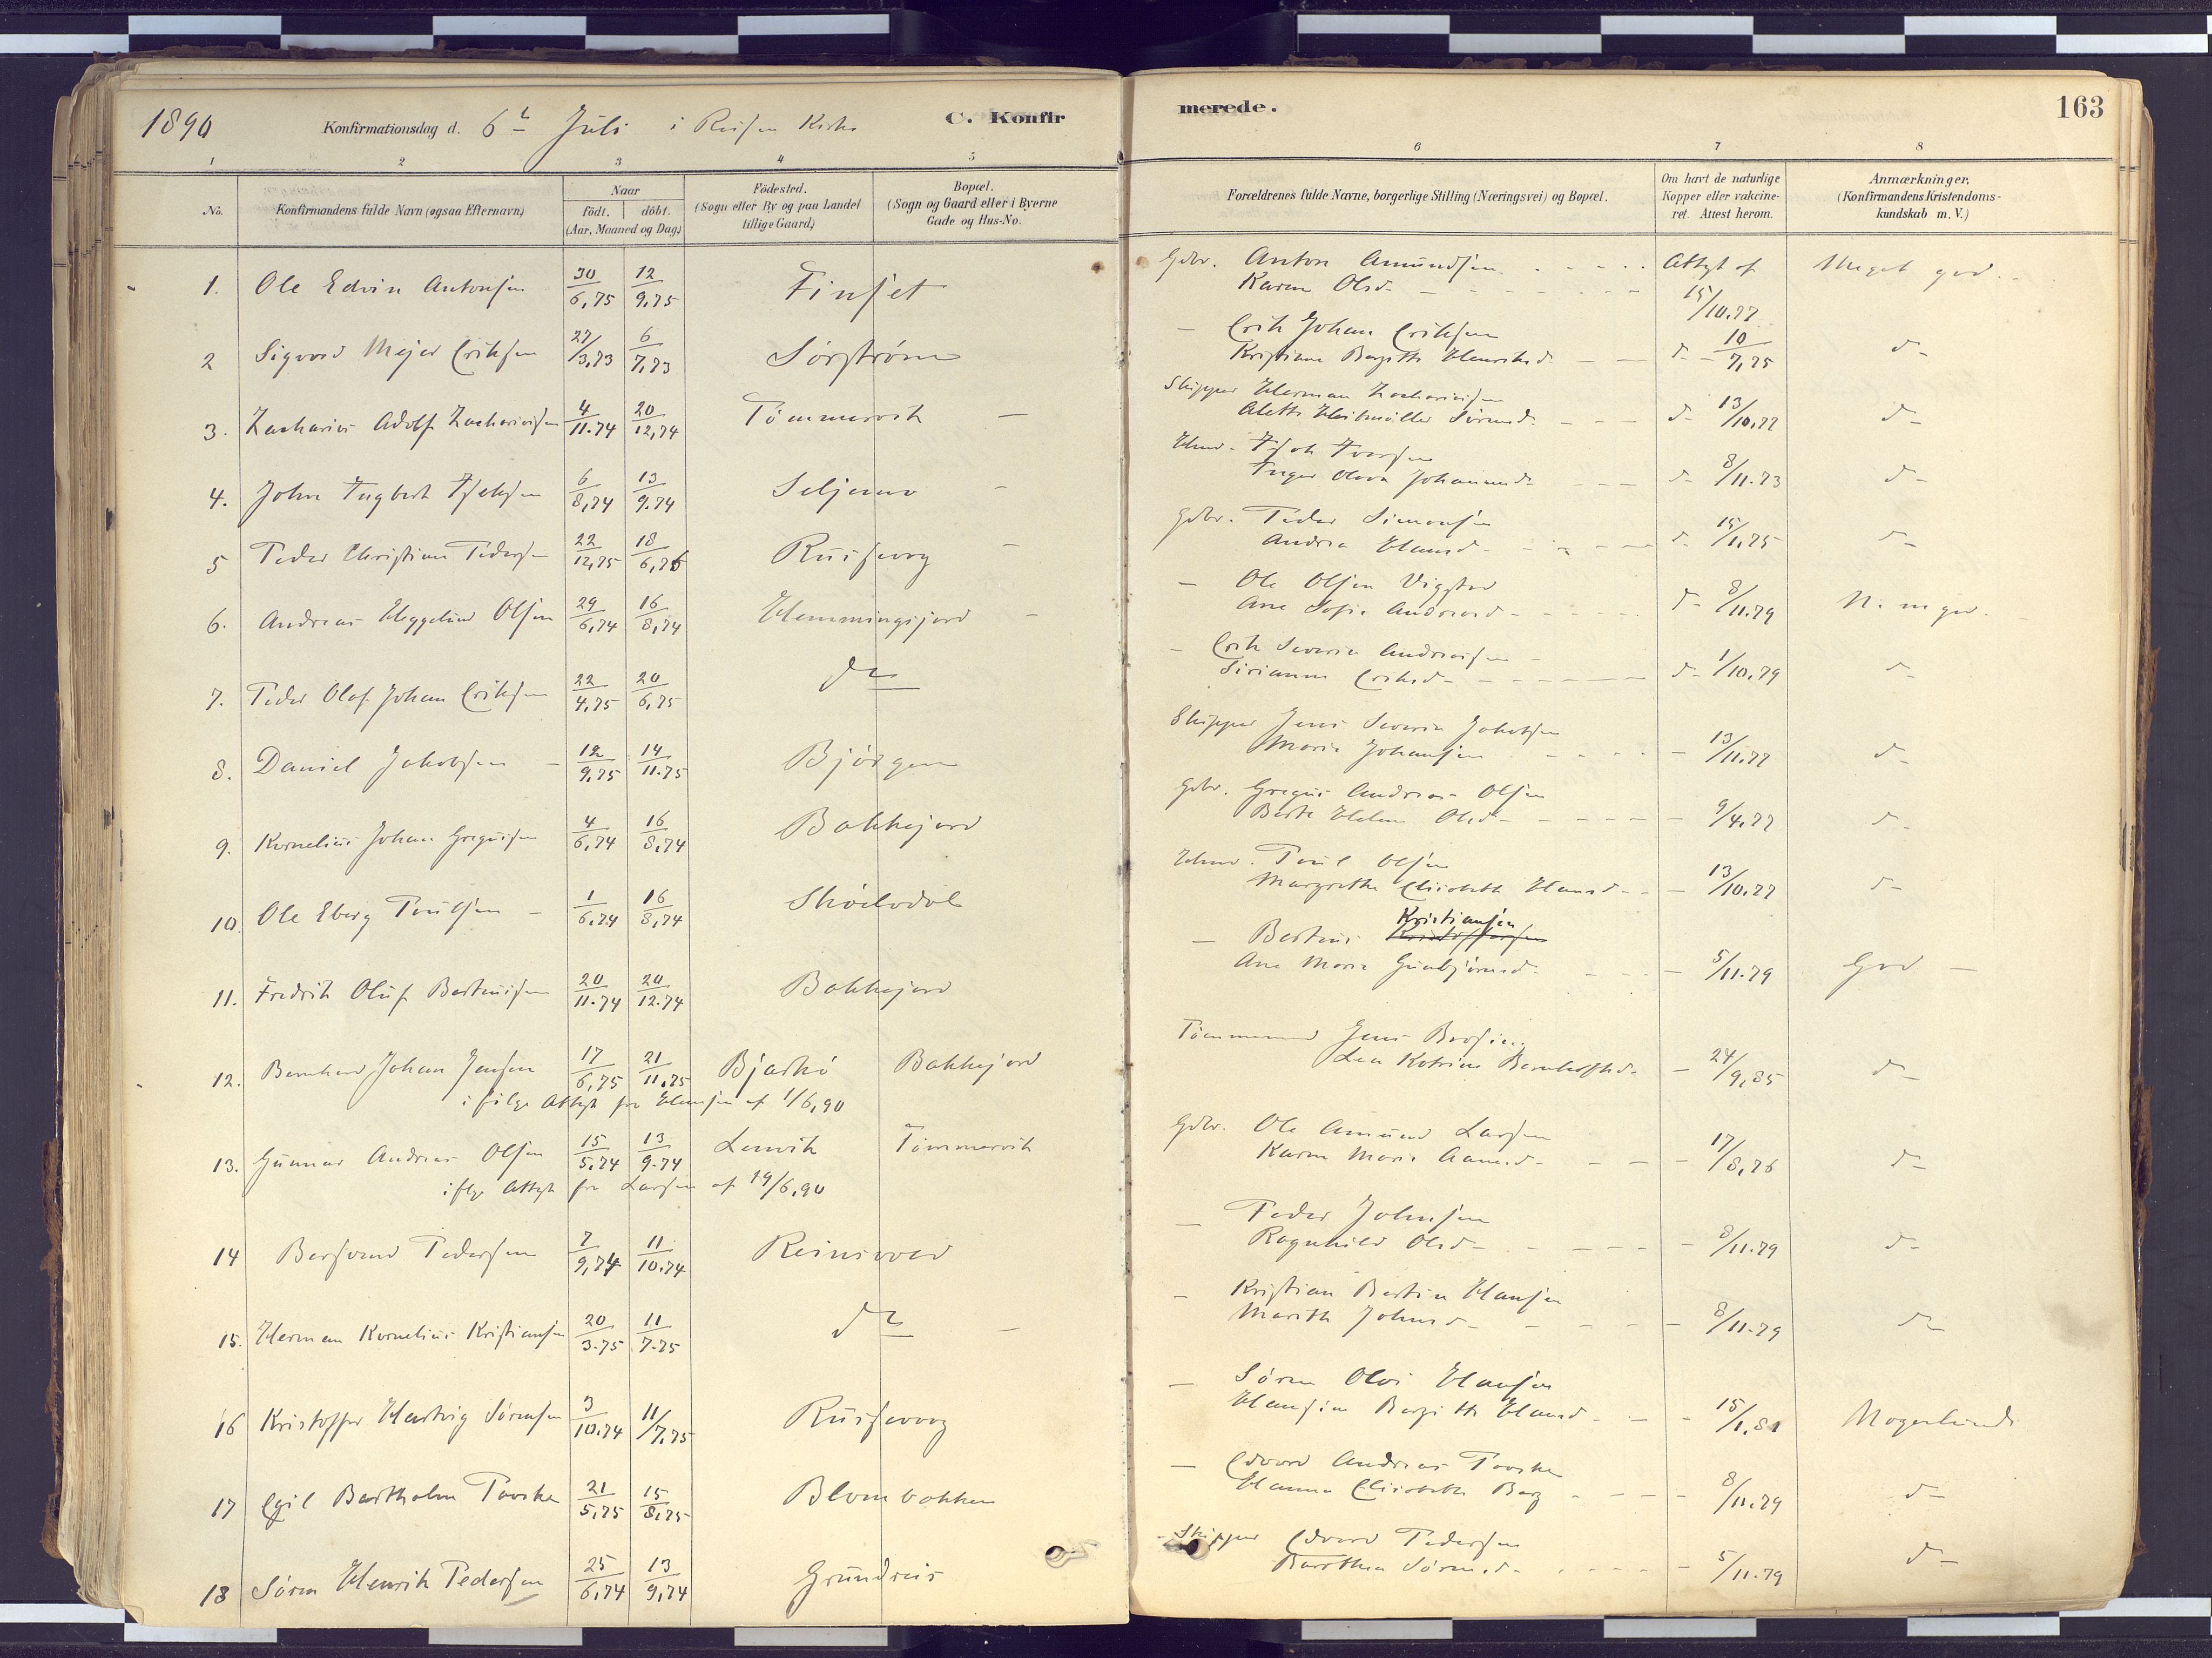 1890 Konfirmationsdag d. 6te Juli i Reisen Kirke C. Konfirmerede. 163
1 2 3 4 5 6 7 8
No. Konfirmandens fulde Navn (ogsaa Efternavn) Naar födt. döbt. (Aar, Maaned og Dag) Födested. (Sogn eller By og paa Landet tillige Gaard) Bopæl. (Sogn og Gaard eller i Byerne Gade og Hus-No. Forældrenes fulde Navne, borgerlige Stilling (Næringsvei) og Bopæl. Om havt de naturlige Kopper eller vakcineret. Attest herom. Anmærkninger, (Konfirmandens Kristendomskundskab m. V.)
1. Ole Edvin Antonsen 30/6,75 12/9,75 Finset Gdbr. Anton Amundsen Attest af Meget god.
Karen Olsd. 15/10.77
2 Sigvard Mejer Eriksen 27/3,73 6/7,73 Sørstrøm — Erik Johan Eriksen
Kristiane Bergitte Henriksd. d- 10/7,75 d-
3. Zacharias Adolf Zachariasen 4/11.74 20/12,74 Tømmervik — Skipper Herman Zachariasen
Alette Sørensd. d- 13/10,77 d-
4. Johan Ingbert 6/8,74 13/9.74 Seljenes - Ivarsen
Inger Olava Johannesd. d- 8/11.73 d-
5 Peder Christian Pedersen 22/12,75 18/6,76 Russevaag - Gdbr. Peder Simonsen
Andrea Hansd. d- 15/1,75 d-
6. Andreas Heggelund Olsen 29/6,74 16/8,74 Hemmingsjord - — Ole Olsen Vigstad
Ane Sofie Andreasd. d- 8/11.79 N. m god.
7. Peder Olaf Johan Eriksen 22/4,75 20/6,75 do - Erik Severin Andreassen
Sirianna Eriksd. d- 1/10.79 d-
8. Daniel Jakobsen 12/9,75 14/11.75 Bjørgen Skipper Jens Severin Jakobsen
Marie Johansen - 13/11.77 d-
9. Kornelius Johan Gregusen 4/6,74 16/8,74 Bakkejord Gdbr. Gregus Andreas Olsen
Berte Helene Olsd. - 9/4.77 d-
10. Ole Eberg Poulsen - 1/6,74 16/8,74 Skøelvdal Poul Olsen
Margrethe Elisabeth Hansd. - 13/10.77 d-
Kristiansen
11. Fredrik Oluf Bertinisen 20/11.74 20/12.74 Bakkejord — Bertinis Kristoffersen
Ane Marie Gunbjørnsd. - 5/11.79 God -
12. Bernhard Johan Jensen 17/6,75 21/11,75 Bjarkö Bakkejord Tømmermand Jens
Lea Katrine - 24/9,85 d-
i følge Attest fra Hansen af 1/6,90
13. Gunnar Andreas Olsen 15/5.74 13/9.74 Lenvik Tømmervik Gdbr. Ole Amund Larsen
Karen Marie - 17/8,76 d-
iflge Attest fra Larsen af 19/6.90
14 Bersvend Pedersen 7/9,74 11/10.74 Reinsvold — Peder Johnsen
Ragnhild Olsd. - 8/11.79 d-
15. Herman Kornelius Kristiansen 20/3.75 11/7.75 do - - Kristian Bertin Hansen
Marith Johnsd. - 8/11.79 d-
16 Kristoffer Hartvig Sørensen 3/10.74 11/7,75 Russevaag — Søren Olai Hansen
Hansine Bergitte Hansd. - 15/1.81 Mogenlunde
17 Egil Bartholm Paaske 21/5,75 15/8,75 Blombakken — Edvard Andreas Paaske
Hanna Elisabeth Berg - 8/11.79 d-
18 Søren Henrik Pedersen 25/6,74 13/9,74 Grundreis Skipper Edvard Pedersen
Berthea Sørensd. - 5/11.79 d-